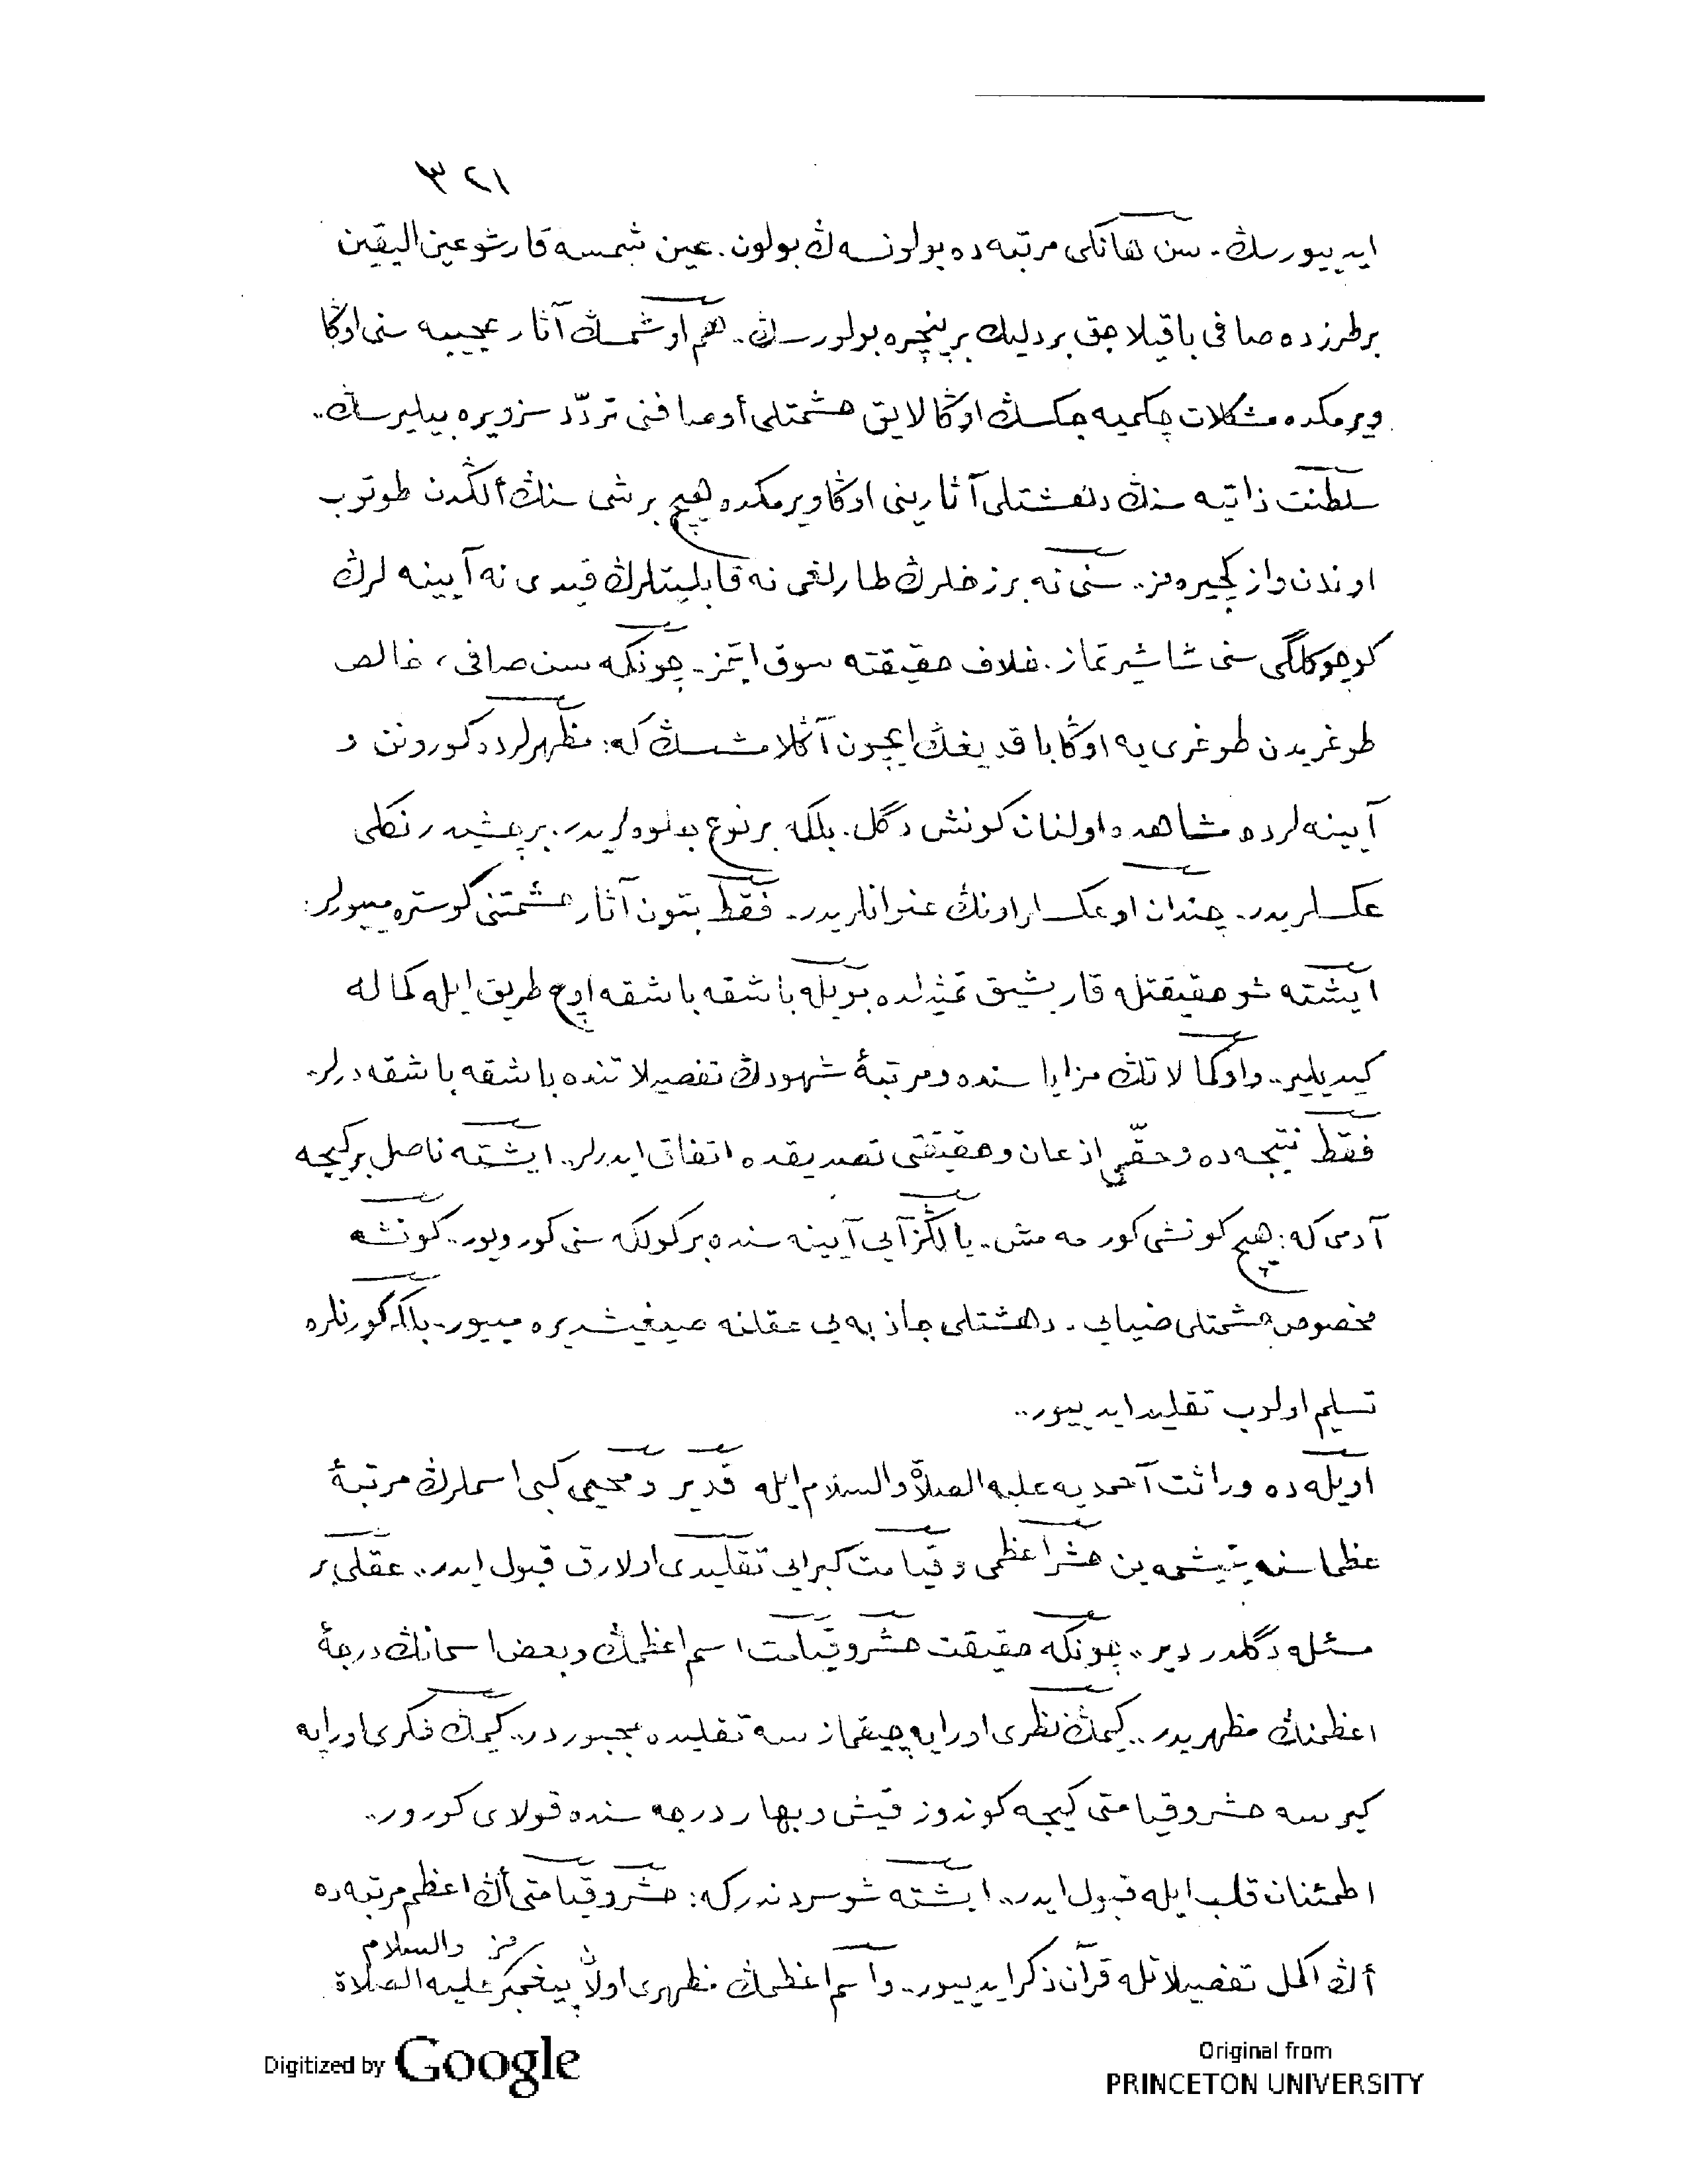 ٣٢١
ايدييورسڭ. سن هانكى مرتبه‌ده بولونسه‌ڭ بولون. عين شمسه قارشو عين اليقين
برطرزده صافى باقيلاجق بردليك برپنجره بولورسڭ. هم او شمسڭ آثار عجيبه سنى اوڭا
ويرمكده مشكلات چكميه جكسڭ اوڭا لايق حشمتلى أوصافنى تردّد سزويره بيليرسڭ..
سلطنت ذاتيه سنڭ دهشتلى آثارينى اوڭا ويرمكده هيچ برشى سنڭ ألڭدن طوتوب
اوندن واز كچيره‌مز.. سنى نه برزخلرڭ طارلغى نه قابليتلرڭ قيدى نه آيينه لرڭ
كوچوكلگى سنى شاشيرتماز. خلاف حقيقته سوق ايتمز. چونكه سن صافى، خالص
طوغريدن طوغرى يه اوڭا باقديغڭ ايچون آڭلامشسڭ كه: مظهرلرده كورونن و
آيينه‌لرده مشاهده اولنان كونش دگل. بلكه برنوع جلوه‌لريدر. برچشيد رنكلى
عكسلريدر. چندان او عكسلر اونڭ عنوانلريدر. فقط بتون آثار حشمتنى كوستره‌ميورلر:
ايشته شو حقيقتله قاريشيق تمثيلده بويله باشقه باشقه اوچ طريق ايله كماله
كيديلير.. و او كمالاتڭ مزاياسنده و مرتبۀ شهودڭ تفصيلاتنده باشقه باشقه درلر.
فقط نتيجه‌ده و حقّى اذعان و حقيقتى تصديقده اتفاق ايدرلر.. ايشته ناصل بركيجه
آدمى كه: هيچ كونشى كورمه مش.. يالڭز آيى آيينه سنده بر كولگه سنى كورويور.. كونشه
مخصوص حشمتلى ضيايى. دهشتلى جاذبه‌يى عقلنه صيغيشديره مييور. بلكه كورنلره
تسليم اولوب تقليد ايدييور..
اويله‌ده وراثت آحمديه عليه الصلاة والسلام ايله قدير و محيى كبى اسملرڭ مرتبۀ
عظماسنه يتيشمه‌ين حشر اعظمى و قيامت كبرايى تقليدى اولارق قبول ايدر.. عقلى بر
مسئله دگلدر دير.. چونكه حقيقت حشر و قيامت اسم اعظمڭ و بعض اسمانڭ درجۀ
اعظمنڭ مظهريدر.. كيمڭ نظرى اورايه چيقماز سه تقليده مجبوردر.. كيمڭ فكرى اورايه
كيرسه حشر و قيامتى كيجه كوندوز قيش و بهار درجه سنده قولاى كورور..
اطمئنان قلب ايله قبول ايدر.. ايشته شو سردندركه: حشر و قيامتى أڭ اعظم مرتبه‌ده
أڭ اكمل تفصيلاتله قرآن ذكر ايدييور.. و اسم اعظمڭ مظهرى اولاڽ پيغمبرمز عليه الصلاة والسلام
Digitized by Google
Original from
PRINCETON UNIVERSITY